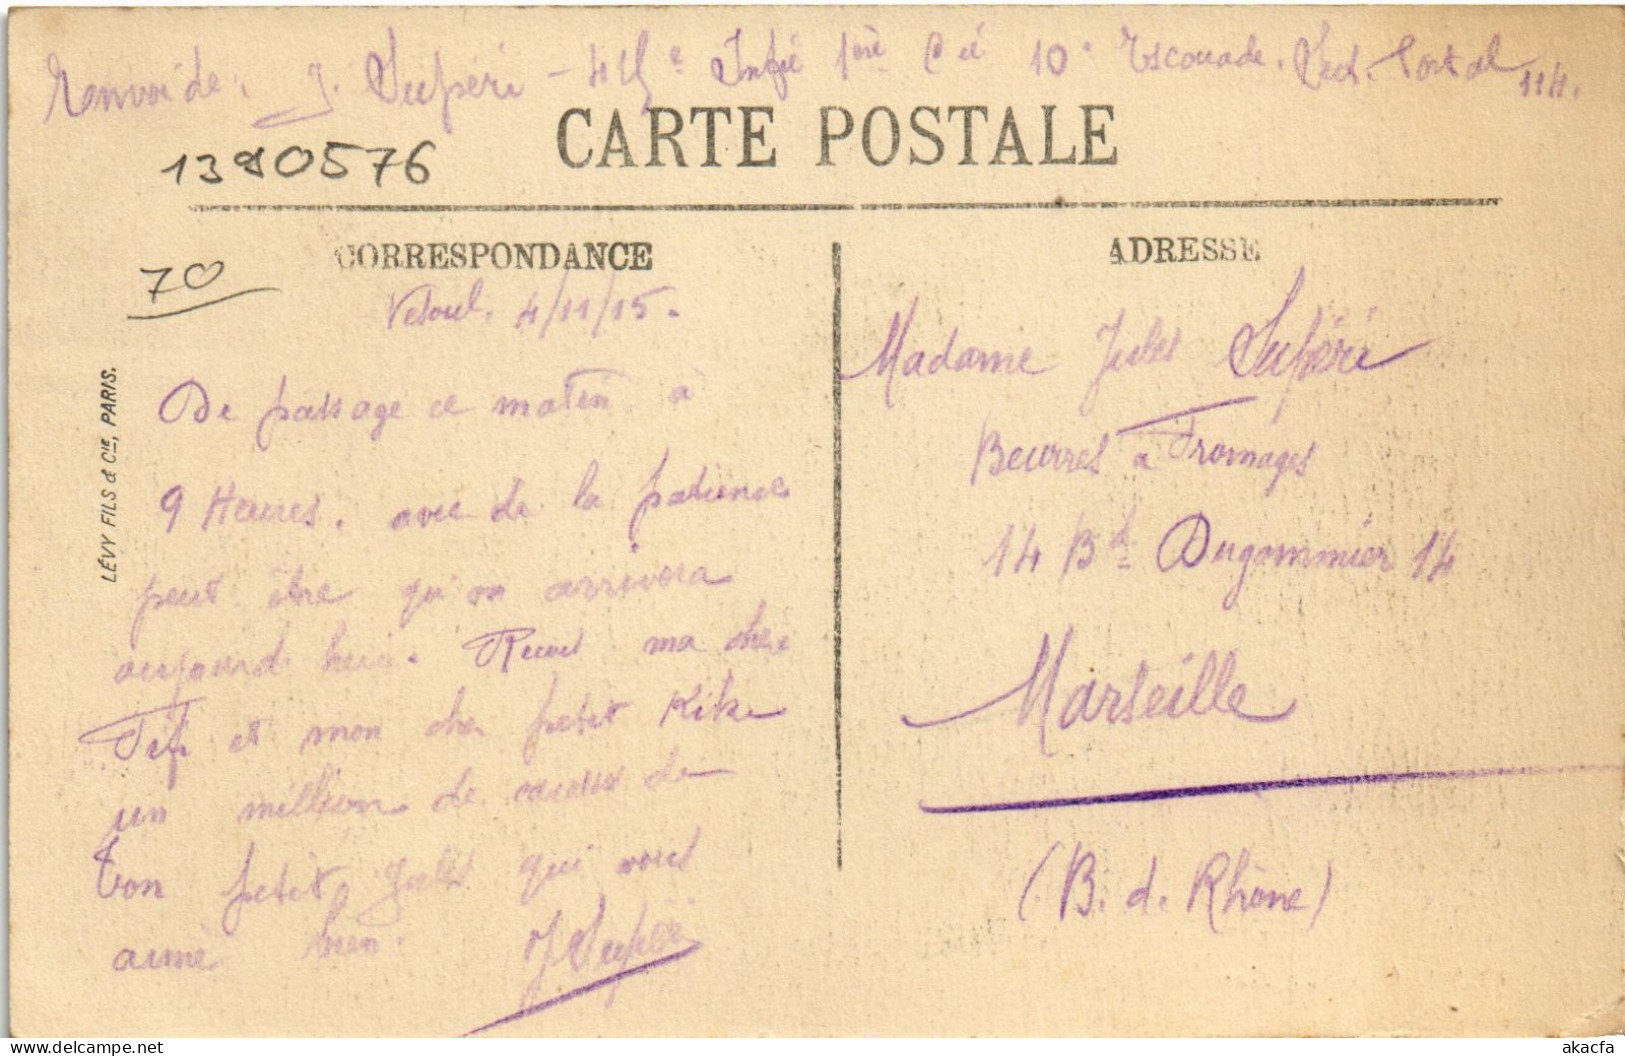 Renvoi de: J. Supéri - 4 Infie 1ère Cie 10e Escouade. Sect. Postal 114.
CARTE POSTALE
1390576
CORRESPONDANCE
70
Vesoul. 4/11/15.
De passage ce matin à
9 Heures. avec de la patience
peut être qu'on arrivera
aujourd'hui. Reçois ma chère
Fifi et mon cher petit Kiki
un million de caresses de
Ton petit Jules qui vous
aime bien. J Supéri
LÉVY FILS & Cie, PARIS.
ADRESSE
Madame Jules Supéri
Beurres & Fromages
14 Bd Dugommier 14
Marseille
(B. d. Rhône)
akacfa